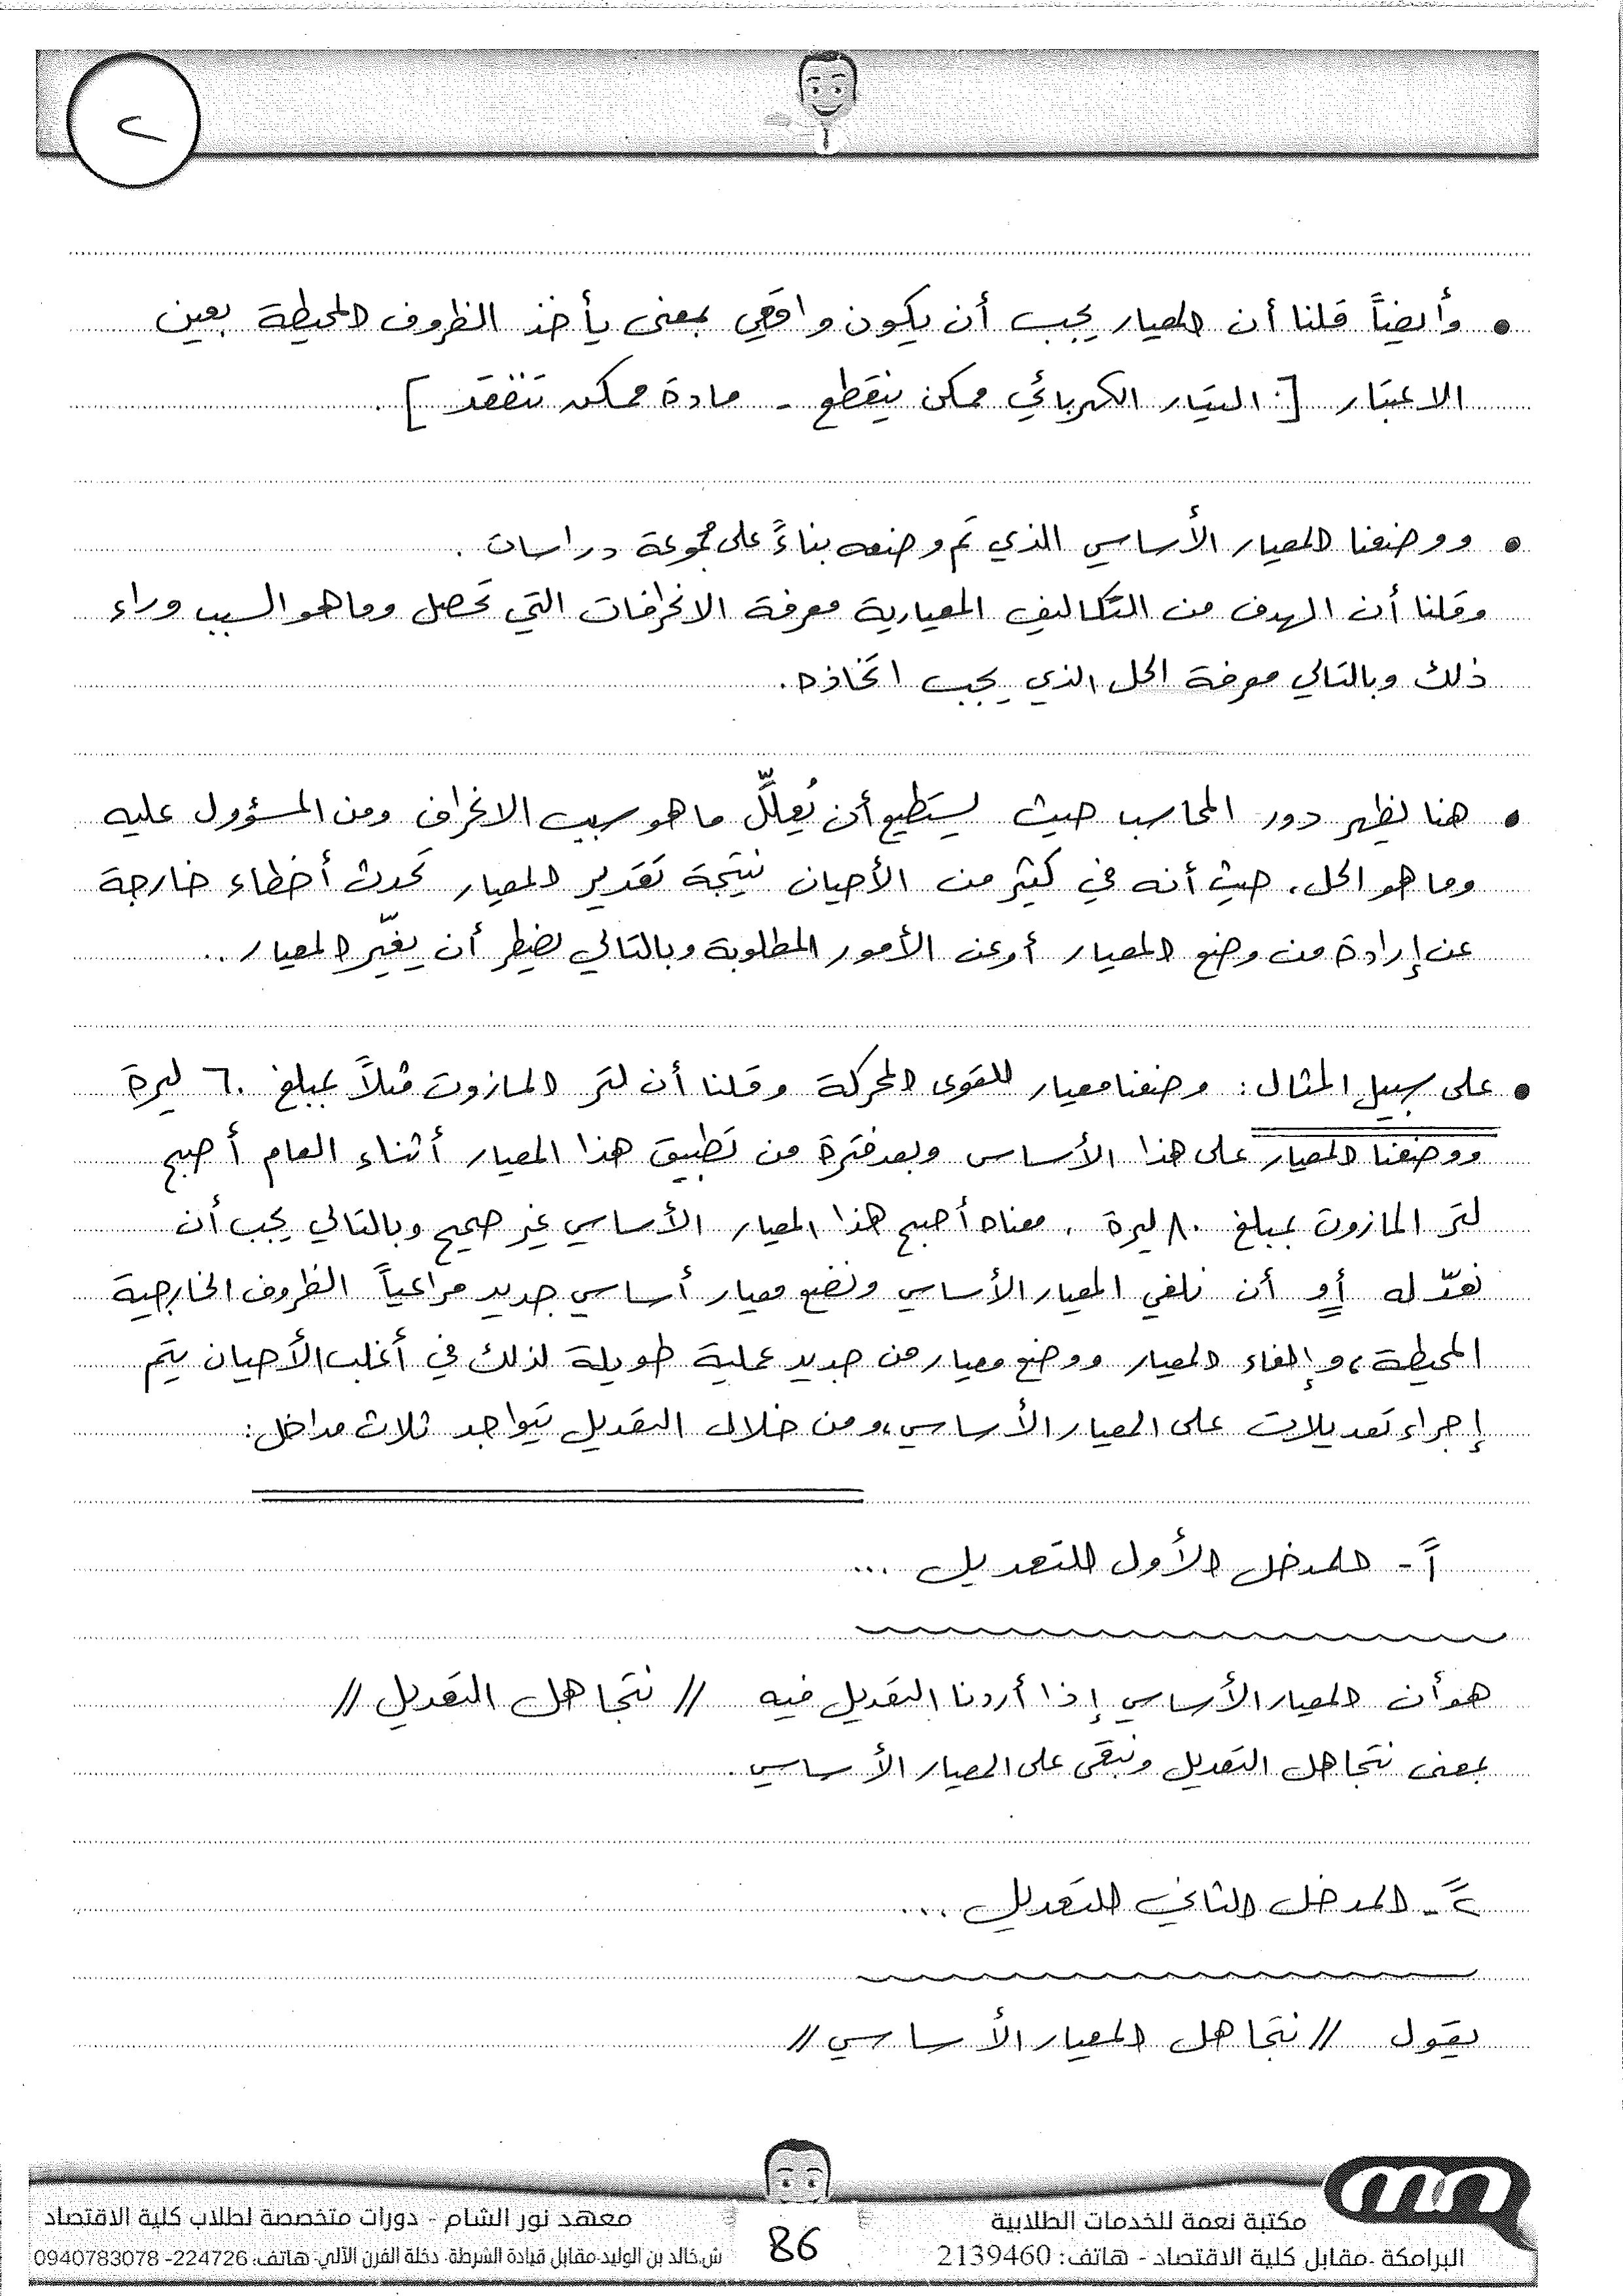 ٢
• وأيضاً قلنا أن المعيار يجب أن يكون واقعي بمعنى يأخذ الظروف المحيطة بعين
الاعتبار [: التيار الكهربائي ممكن ينقطع - مادة ممكن تنفقد ] .
• ووضعنا المعيار الأساسي الذي تم وضعه بناءً على مجموعة دراسات .
وقلنا أن الهدف من التكاليف المعيارية معرفة الانحرافات التي تحصل وما هو السبب وراء
ذلك وبالتالي معرفة الحل الذي يجب اتخاذه .
• هنا يظهر دور المحاسب حيث يستطيع أن يُعلِّل ما هو سبب الانحراف ومن المسؤول عليه
وما هو الحل . حيث أنه في كثير من الأحيان نتيجة تقدير المعيار تحدث أخطاء خارجة
عن إرادة من وضع المعيار أو عن الأمور المطلوبة وبالتالي يضطر أن يغيّر المعيار ..
• على سبيل المثال : وضعنا معيار للقوى المحركة وقلنا أن لتر المازوت مثلاً بمبلغ ٦٠ ليرة
ووضعنا المعيار على هذا الأساس وبعد فترة من تطبيق هذا المعيار أثناء العام أصبح
لتر المازوت بمبلغ ٨٠ ليرة . معناه أصبح هذا المعيار الأساسي غير صحيح وبالتالي يجب أن
نعدّله أو أن نلغي المعيار الأساسي ونضع معيار أساسي جديد مراعياً الظروف الخارجية
المحيطة ، وإلغاء المعيار ووضع معيار من جديد عملية طويلة لذلك في أغلب الأحيان يتم
إجراء تعديلات على المعيار الأساسي ، ومن خلال التعديل يتواجد ثلاث مداخل :
١ً - المدخل الأول للتعديل ...
هو أن المعيار الأساسي إذا أردنا التعديل فيه // نتجاهل التعديل //
بمعنى نتجاهل التعديل ونبقى على المعيار الأساسي .
٢ً - المدخل الثاني للتعديل ...
يقول // نتجاهل المعيار الأساسي //
مكتبة نعمة للخدمات الطلابية
البرامكة -مقابل كلية الاقتصاد - هاتف: 2139460
86
معهد نور الشام - دورات متخصصة لطلاب كلية الاقتصاد
ش.خالد بن الوليد-مقابل قيادة الشرطة- دخلة الفرن الآلي- هاتف: 224726- 0940783078